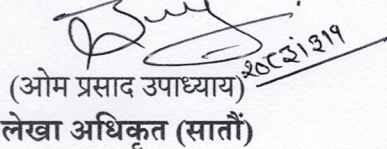 २०८२।३।१९
(ओम प्रसाद उपाध्याय)
लेखा अधिकृत (सातौं)